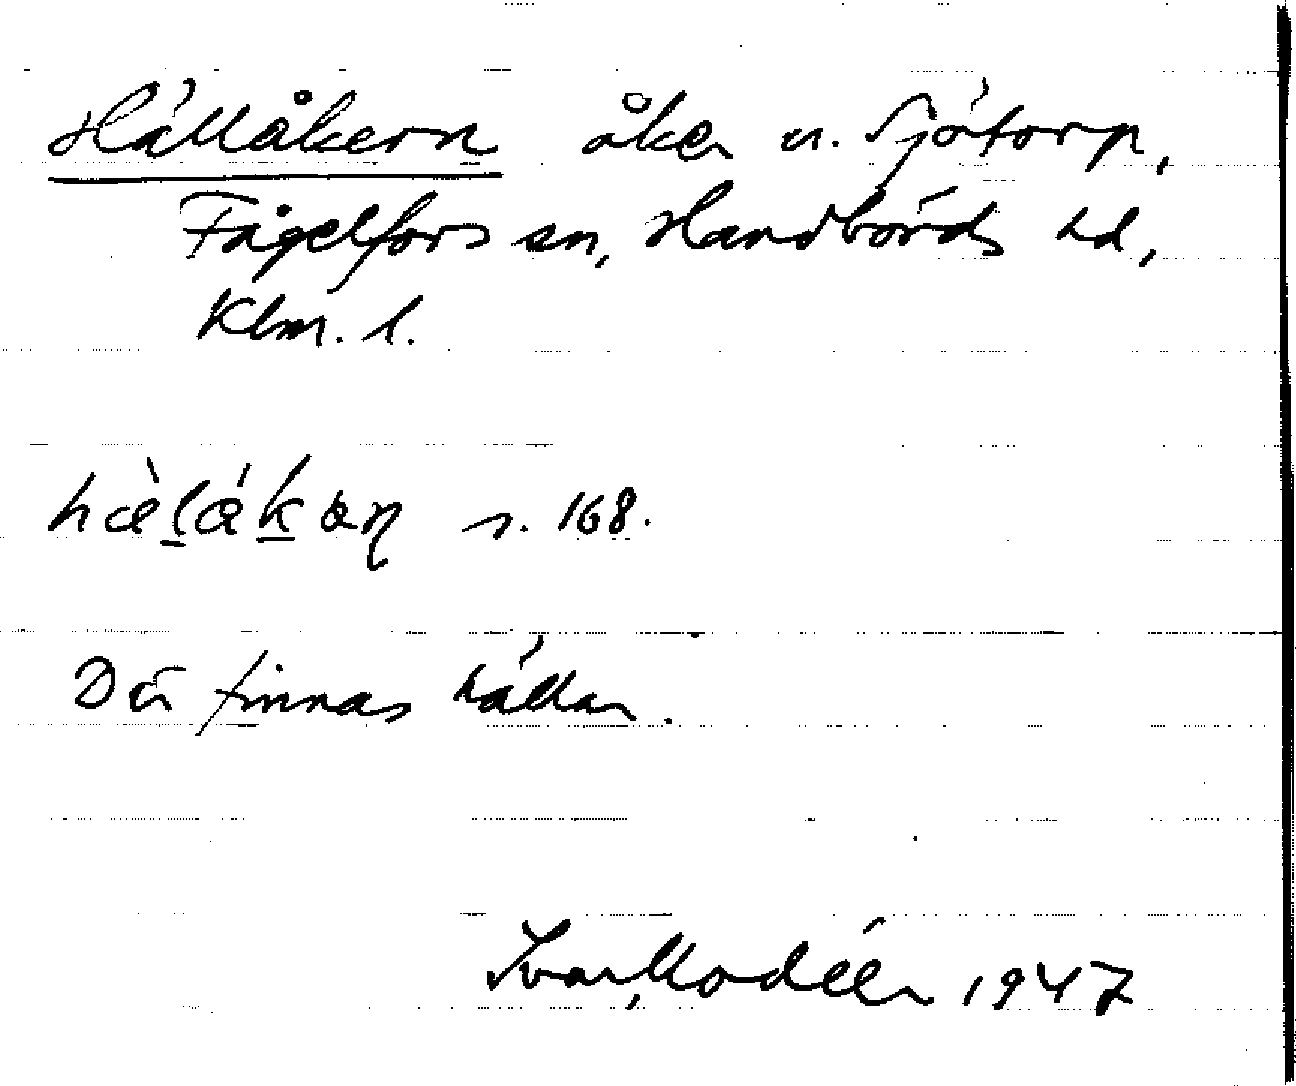 Hällåkern åker u. Sjötorp,
Fågelfors sn, Handbörds hd,
Klm. l.
s. 168.
Där finnas hällar.
Ivar Modéer 1947